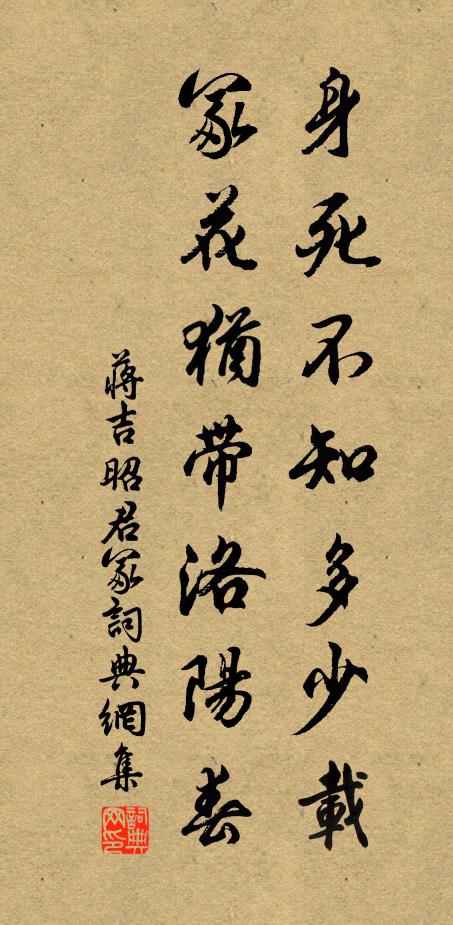 身死不知多少載
冢花猶帶洛陽春
蔣吉昭君冢詞典網集
詞典網印